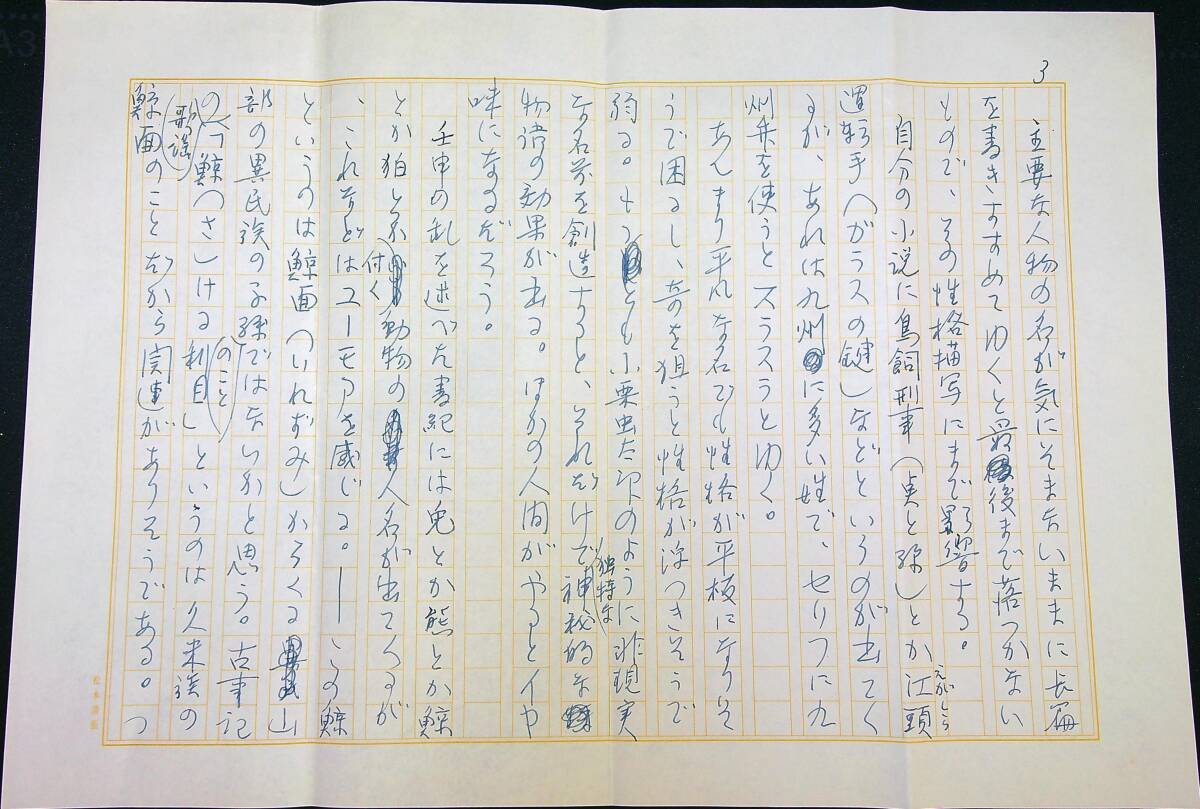 3
主要な人物の名が気にそまないままに長篇
を書きすすめてゆくと最後まで落つかない
もので、その性格描写にまで影響する。
自分の小説に鳥飼刑事(「点と線」)とか江頭
えがしら
運転手(「ガラスの鍵」)などというのが出てく
るが、あれは九州に多い姓で、セリフに九
州弁を使うとスラスラとゆく。
あんまり平凡な名でも性格が平板になりそ
うで困るし、奇を狙うと性格が浮つきそうで
弱る。もっとも小栗虫太郎のように非現実
な名前を創造すると、それだけで独特な神秘的な
物語の効果が出る。ほかの人間がやるとイヤ
味になるだろう。
壬申の乱を述べた書紀には兎とか熊とか鯨
とか狛とか付く動物の人名が出てくるが
、これなどはユーモアを感じる。――この鯨
というのは鯨面(いれずみ)からくる山
部の異民族の子孫のことではないかと思う。古事記
の(歌謡)「鯨(へさ)ける利目」というのは久米族の
鯨面のことだから関連がありそうである。つ